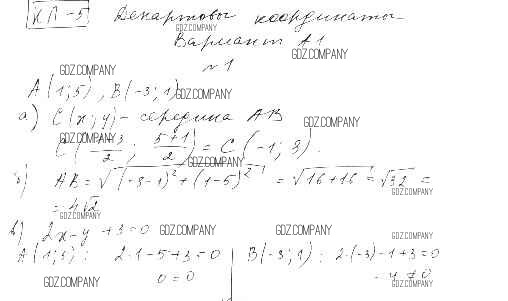 КП-5 Декартовы координаты
GDZ.COMPANY
Вариант А1
GDZ.COMPANY
№1
GDZ.COMPANY
A(1;5), B(-3;1) GDZ.COMPANY
а) C(x;y) - середина AB GDZ.COMPANY
GDZ.COMPANY
C( 1-3/2 ; 5+1/2 ) = C(-1;3).
GDZ.COMPANY
б) AB = √(-3-1)²+(1-5)² = √16+16 = √32 =
GDZ.COMPANY
= 4√2
GDZ.COMPANY
в) 2x-y+3=0 GDZ.COMPANY GDZ.COMPANY GDZ.COMPANY
A(1;5): 2·1-5+3=0 B(-3;1): 2·(-3)-1+3=0
0=0 -4≠0
GDZ.COMPANY GDZ.COMPANY GDZ.COMPANY